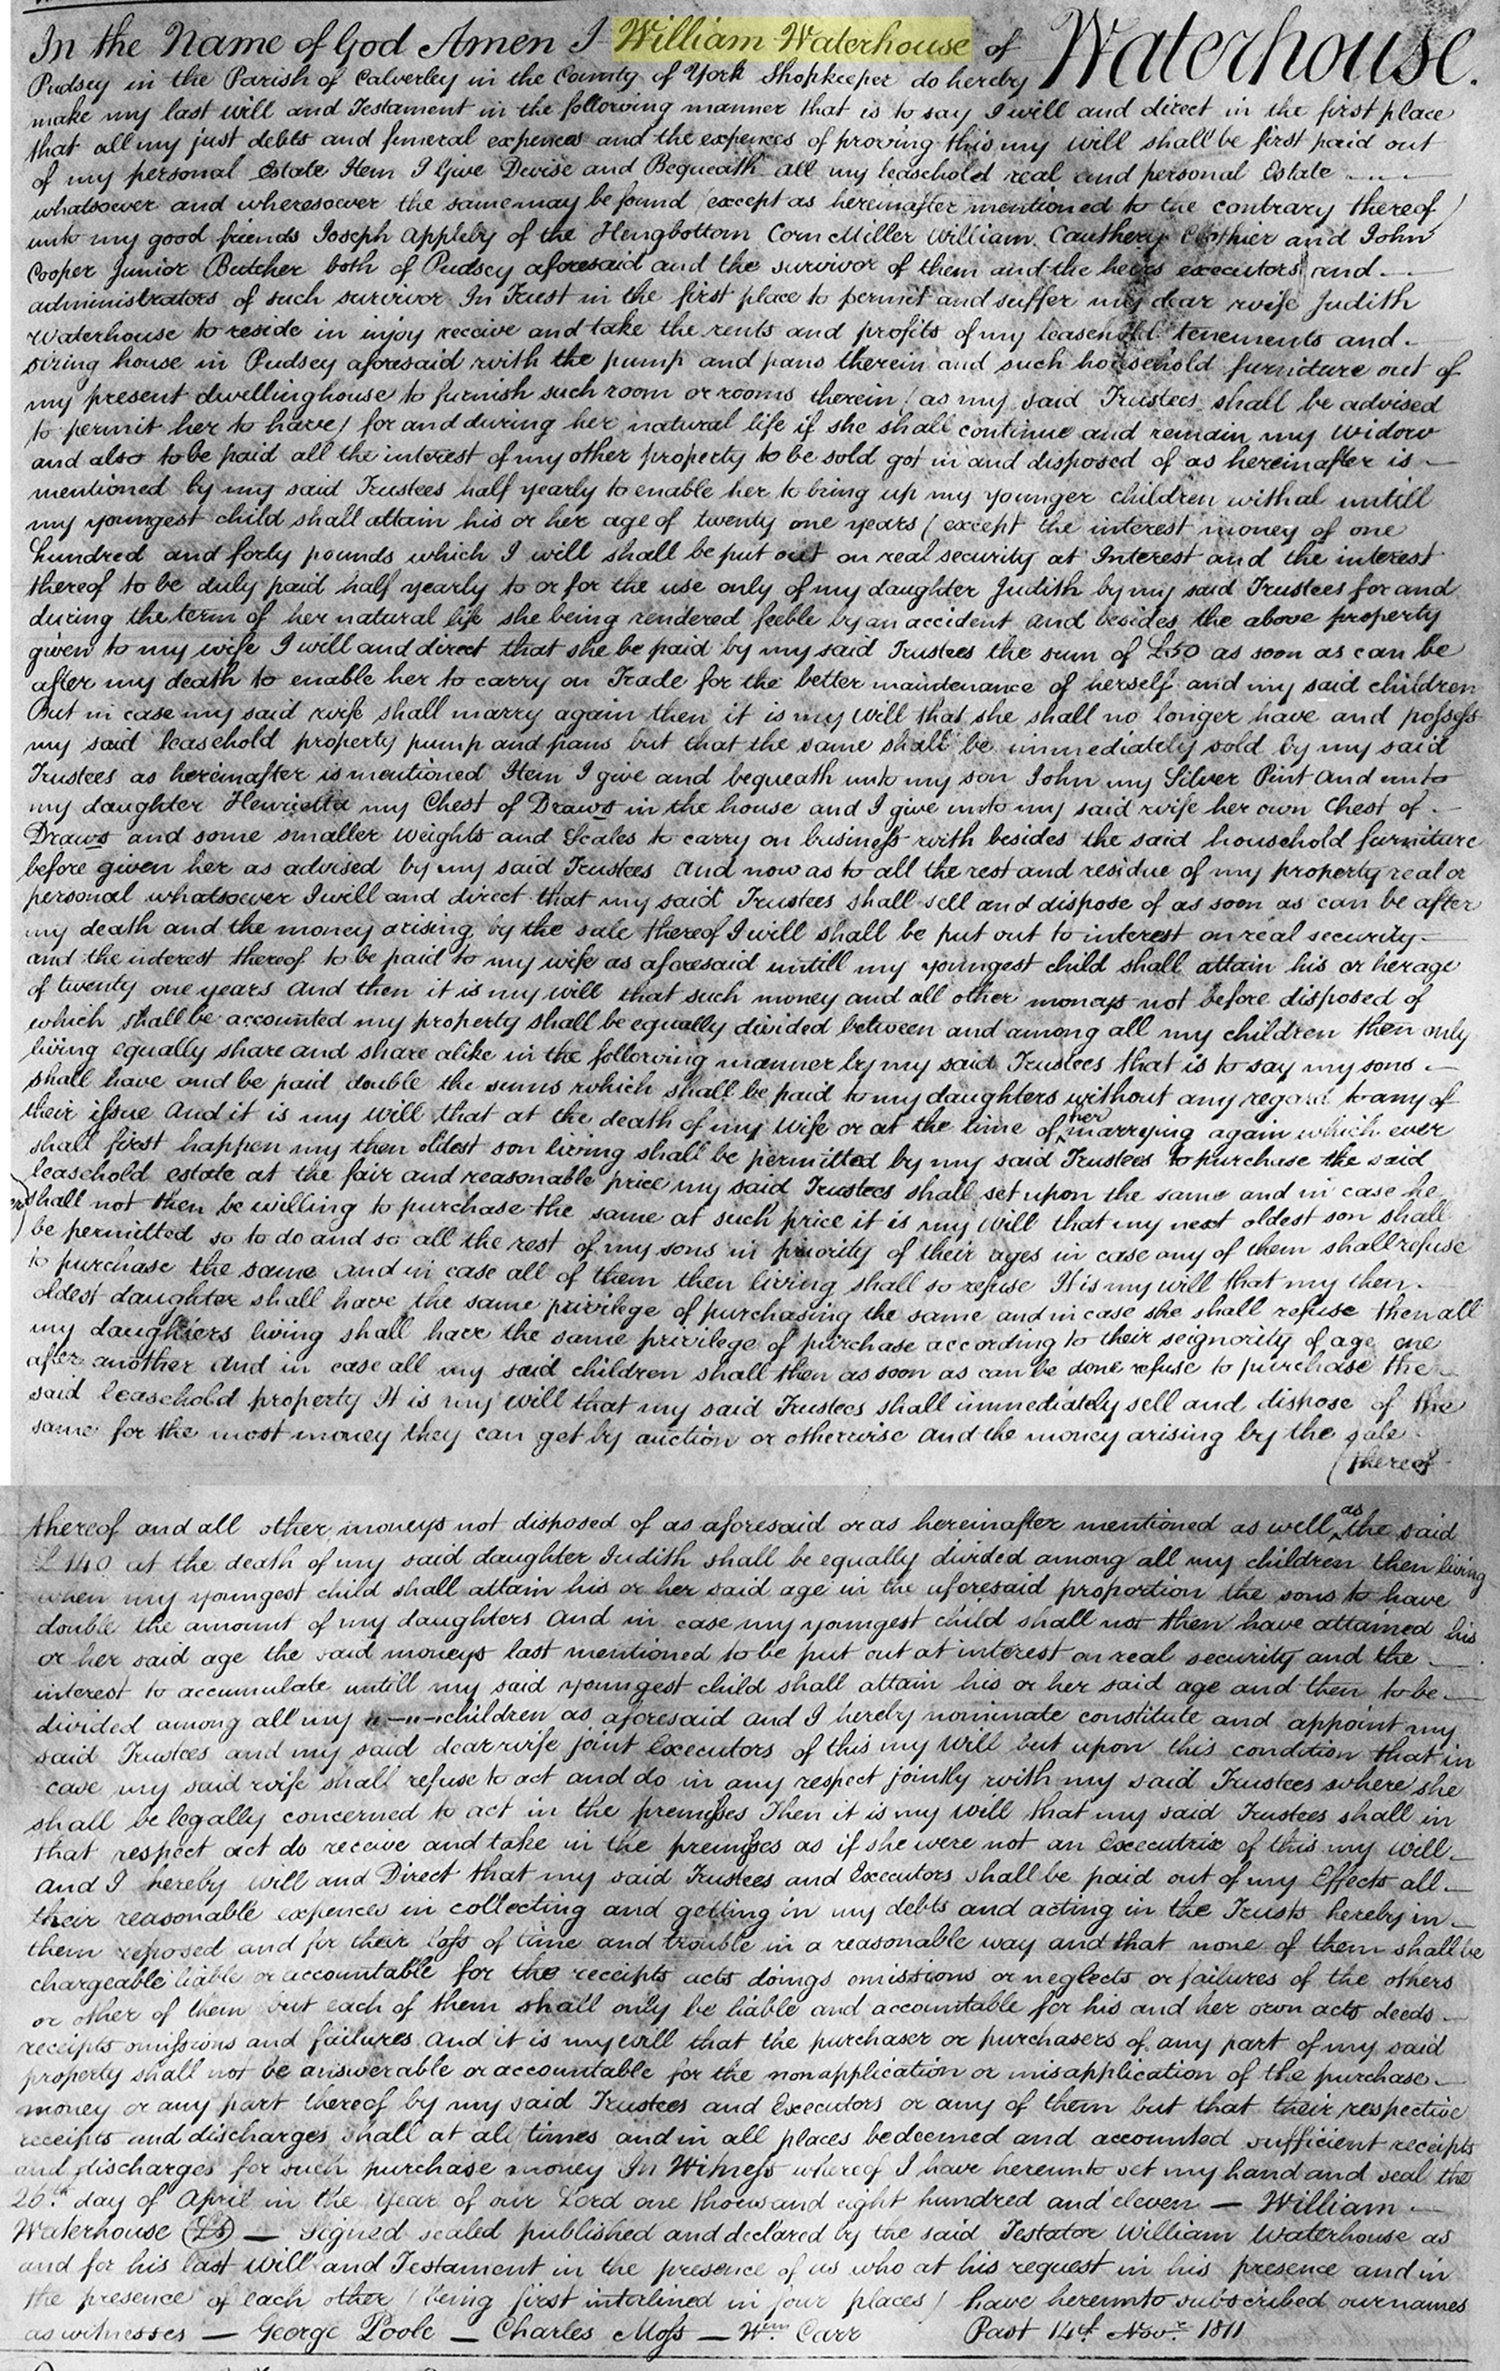 In the Name of God Amen I William Waterhouse of Waterhouse.
Pudsey in the Parish of Calverley in the County of York Shopkeeper do hereby
make my last will and Testament in the following manner that is to say I will and direct in the first place
that all my just debts and funeral expences and the expences of proving this my will shall be first paid out
of my personal Estate Item I Give Devise and Bequeath all my leasehold real and personal Estate
whatsoever and wheresoever the same may be found (except as hereinafter mentioned to the contrary thereof)
unto my good friends Joseph Appleby of the Hengbottom Corn Miller William Cauthery Clothier and John
Cooper Junior Butcher both of Pudsey aforesaid and the survivor of them and the heirs executors and
administrators of such survivor In Trust in the first place to permit and suffer my dear wife Judith
Waterhouse to reside in injoy receive and take the rents and profits of my leasehold tenements and
sizing house in Pudsey aforesaid with the pump and pans therein and such household furniture out of
my present dwellinghouse to furnish such room or rooms therein (as my said Trustees shall be advised
to permit her to have) for and during her natural life if she shall continue and remain my widow
and also to be paid all the interest of my other property to be sold got in and disposed of as hereinafter is
mentioned by my said Trustees half yearly to enable her to bring up my younger children withal untill
my youngest child shall attain his or her age of twenty one years (except the interest money of one
hundred and forty pounds which I will shall be put out on real security at Interest and the interest
thereof to be duly paid half yearly to or for the use only of my daughter Judith by my said Trustees for and
during the term of her natural life she being rendered feeble by an accident and besides the above property
given to my wife I will and direct that she be paid by my said Trustees the sum of £50 as soon as can be
after my death to enable her to carry on Trade for the better maintenance of herself and my said children
But in case my said wife shall marry again then it is my Will that she shall no longer have and possess
my said leasehold property pump and pans but that the same shall be immediately sold by my said
Trustees as hereinafter is mentioned Item I give and bequeath unto my son John my Silver Pint and unto
my daughter Henrietta my Chest of Draws in the house and I give unto my said wife her own Chest of
Draws and some smaller weights and Scales to carry on business with besides the said household furniture
before given her as advised by my said Trustees and now as to all the rest and residue of my property real or
personal whatsoever I will and direct that my said Trustees shall sell and dispose of as soon as can be after
my death and the money arising by the sale thereof I will shall be put out to interest on real security
and the interest thereof to be paid to my wife as aforesaid untill my youngest child shall attain his or her age
of twenty one years and then it is my will that such money and all other moneys not before disposed of
which shall be accounted my property shall be equally divided between and among all my children then only
living equally share and share alike in the following manner by my said Trustees that is to say my sons
shall have and be paid double the sums which shall be paid to my daughters without any regard to any of
their issue And it is my will that at the death of my Wife or at the time of her marrying again which ever
shall first happen my then oldest son living shall be permitted by my said Trustees to purchase the said
leasehold estate at the fair and reasonable price my said Trustees shall set upon the same and in case he
shall not then be willing to purchase the same at such price it is my Will that my next oldest son shall
be permitted so to do and so all the rest of my sons in priority of their ages in case any of them shall refuse
to purchase the same and in case all of them then living shall so refuse It is my will that my then
oldest daughter shall have the same privilege of purchasing the same and in case she shall refuse then all
my daughters living shall have the same privilege of purchase according to their seignority of age one
after another and in case all my said children shall then as soon as can be done refuse to purchase the
said leasehold property It is my will that my said Trustees shall immediately sell and dispose of the
same for the most money they can get by auction or otherwise and the money arising by the sale
(thereof
thereof and all other moneys not disposed of as aforesaid or as hereinafter mentioned as well as the said
£140 at the death of my said daughter Judith shall be equally divided among all my children then living
when my youngest child shall attain his or her said age in the aforesaid proportion the sons to have
double the amount of my daughters and in case my youngest child shall not then have attained his
or her said age the said moneys last mentioned to be put out at interest on real security and the
interest to accumulate untill my said youngest child shall attain his or her said age and then to be
divided among all my children as aforesaid and I hereby nominate constitute and appoint my
said Trustees and my said dear wife joint Executors of this my Will but upon this condition that in
case my said wife shall refuse to act and do in any respect jointly with my said Trustees where she
shall be legally concerned to act in the premises Then it is my will that my said Trustees shall in
that respect act do receive and take in the premises as if she were not an Executrix of this my will
and I hereby will and Direct that my said Trustees and Executors shall be paid out of my Effects all
their reasonable expences in collecting and getting in my debts and acting in the Trusts hereby in
them reposed and for their loss of time and trouble in a reasonable way and that none of them shall be
chargeable liable or accountable for the receipts acts doings omissions or neglects or failures of the others
or other of them but each of them shall only be liable and accountable for his and her own acts deeds
receipts omissions and failures and it is my will that the purchaser or purchasers of any part of my said
property shall not be answerable or accountable for the nonapplication or misapplication of the purchase
money or any part thereof by my said Trustees and Executors or any of them but that their respective
receipts and discharges shall at all times and in all places be deemed and accounted sufficient receipts
and discharges for such purchase money In Witness whereof I have hereunto set my hand and seal the
26th day of April in the Year of our Lord one thousand eight hundred and eleven — William
Waterhouse (LS) — Signed sealed published and declared by the said Testator William Waterhouse as
and for his last Will and Testament in the presence of us who at his request in his presence and in
the presence of each other (being first interlined in four places) have hereunto subscribed our names
as witnesses — George Poole — Charles Moss — Wm Carr Past 14th Novr 1811